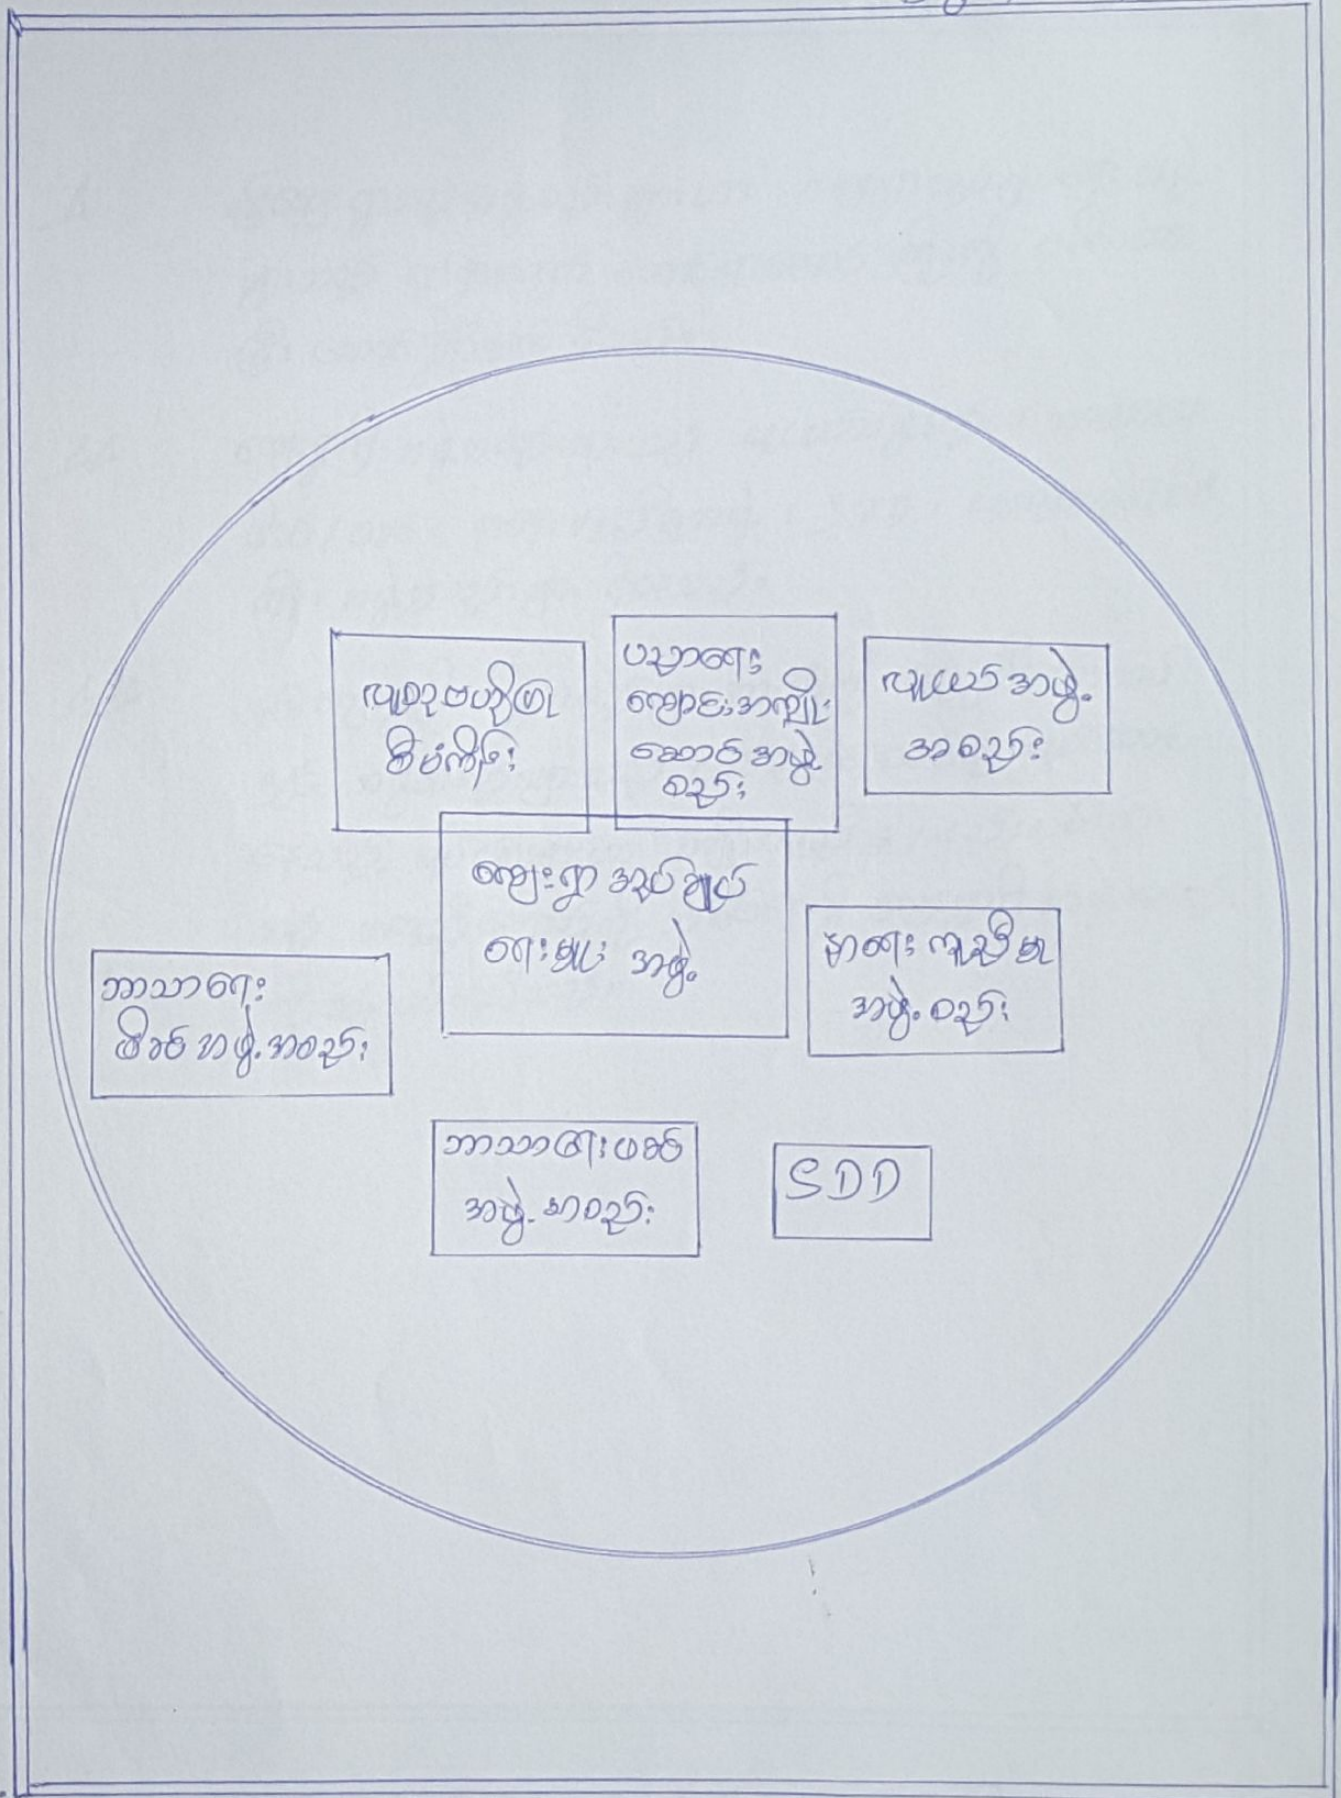 လူထုဗဟိုပြု
စီမံကိန်း
ပညာရေး
ကျောင်းအကျိုး
ဆောင်အဖွဲ့
စည်း
လူငယ် အဖွဲ့
အစည်း
ကျေးရွာ အုပ်ချုပ်
ရေးမှူး အဖွဲ့
နာရေး ကူညီမှု
အဖွဲ့ စည်း
ဘာသာရေး
အဖွဲ့ အစည်း
ဘာသာရေး
အဖွဲ့ အစည်း
SDD